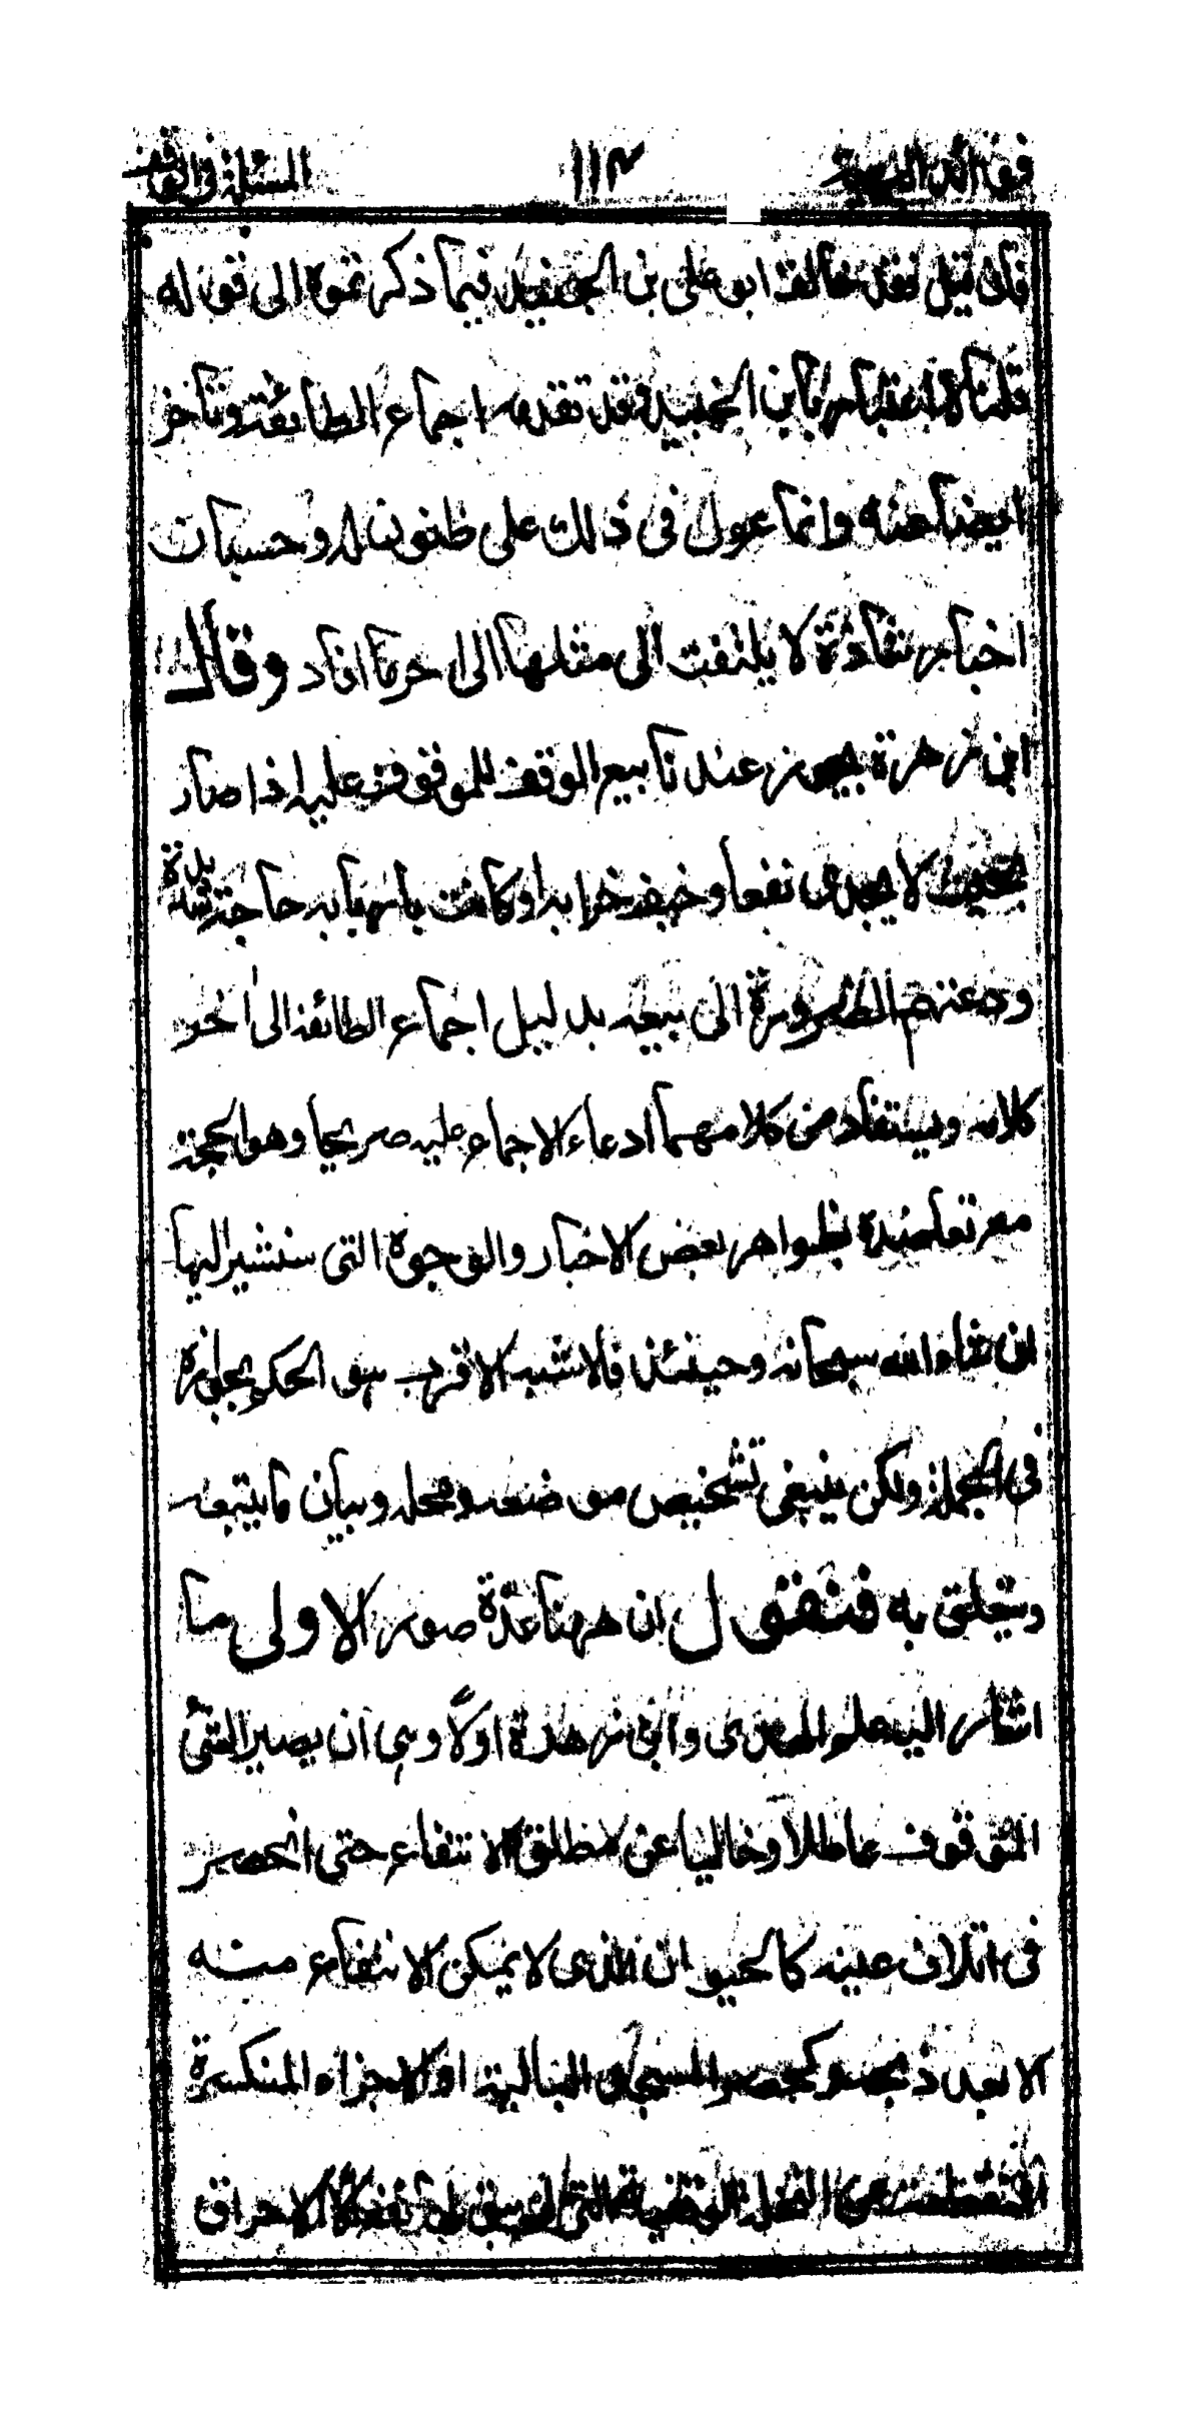 المسئلة في الوقف ١١٣
فان قيل فقد خالف ابو علي بن الجنيد فيما ذكرتموه الى قوله
قلنا لا اعتبار بابن الجنيد فقد تقدمه اجماع الطائفة وتاخر
ايضا عنه وانما عول في ذلك على ظنون له وحسبان
اخبار شاذة لا يلتفت الى مثلها الى اخر ما افاد وقال
ابن زهرة يجوز عندنا بيع الوقف للموقوف عليه اذا صار
بحيث لا يجدي نفعا وخيف خرابه او كانت باربابه حاجة شديدة
ودعتهم الضرورة الى بيعه بدليل اجماع الطائفة الى اخر
كلامه ويستفاد من كلامهما ادعاء الاجماع عليه صريحا وهو الحجة
معتضدة بظواهر بعض الاخبار والوجوه التي سنشير اليها
ان شاء الله سبحانه وحينئذ فالاشبه الاقرب هو الحكم بجوازه
في الجملة ولكن ينبغي تشخيص موضعه ومحله وبيان ما يتبعه
ويتعلق به فنقول ان ههنا عدة صور الاولى ما
اشار اليه علم الهدى وابن زهرة اولا وهي ان يصير الشئ
الموقوف عاطلا وخاليا عن مطلق الانتفاع حتى انحصر
في اتلاف عينه كالحيوان الذي لا يمكن الانتفاع منه
الا بعد ذبحه وكحصر المسجد البالية او الاجزاء المنكسرة
المنقطعة عن التي لم يبق الا الاحراق